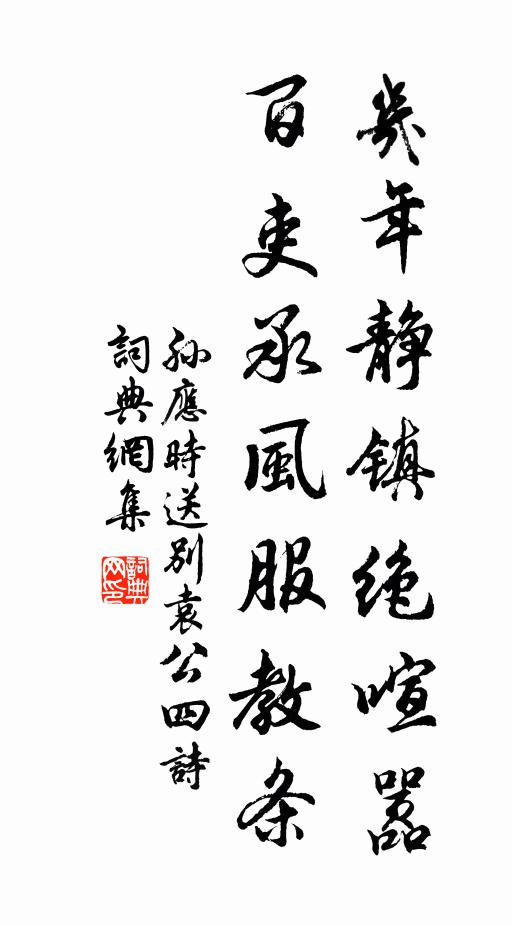 幾年静鎮絶喧嚣
百吏承風服教条
孫應時送别袁公四詩
詞典網集
詞典網印